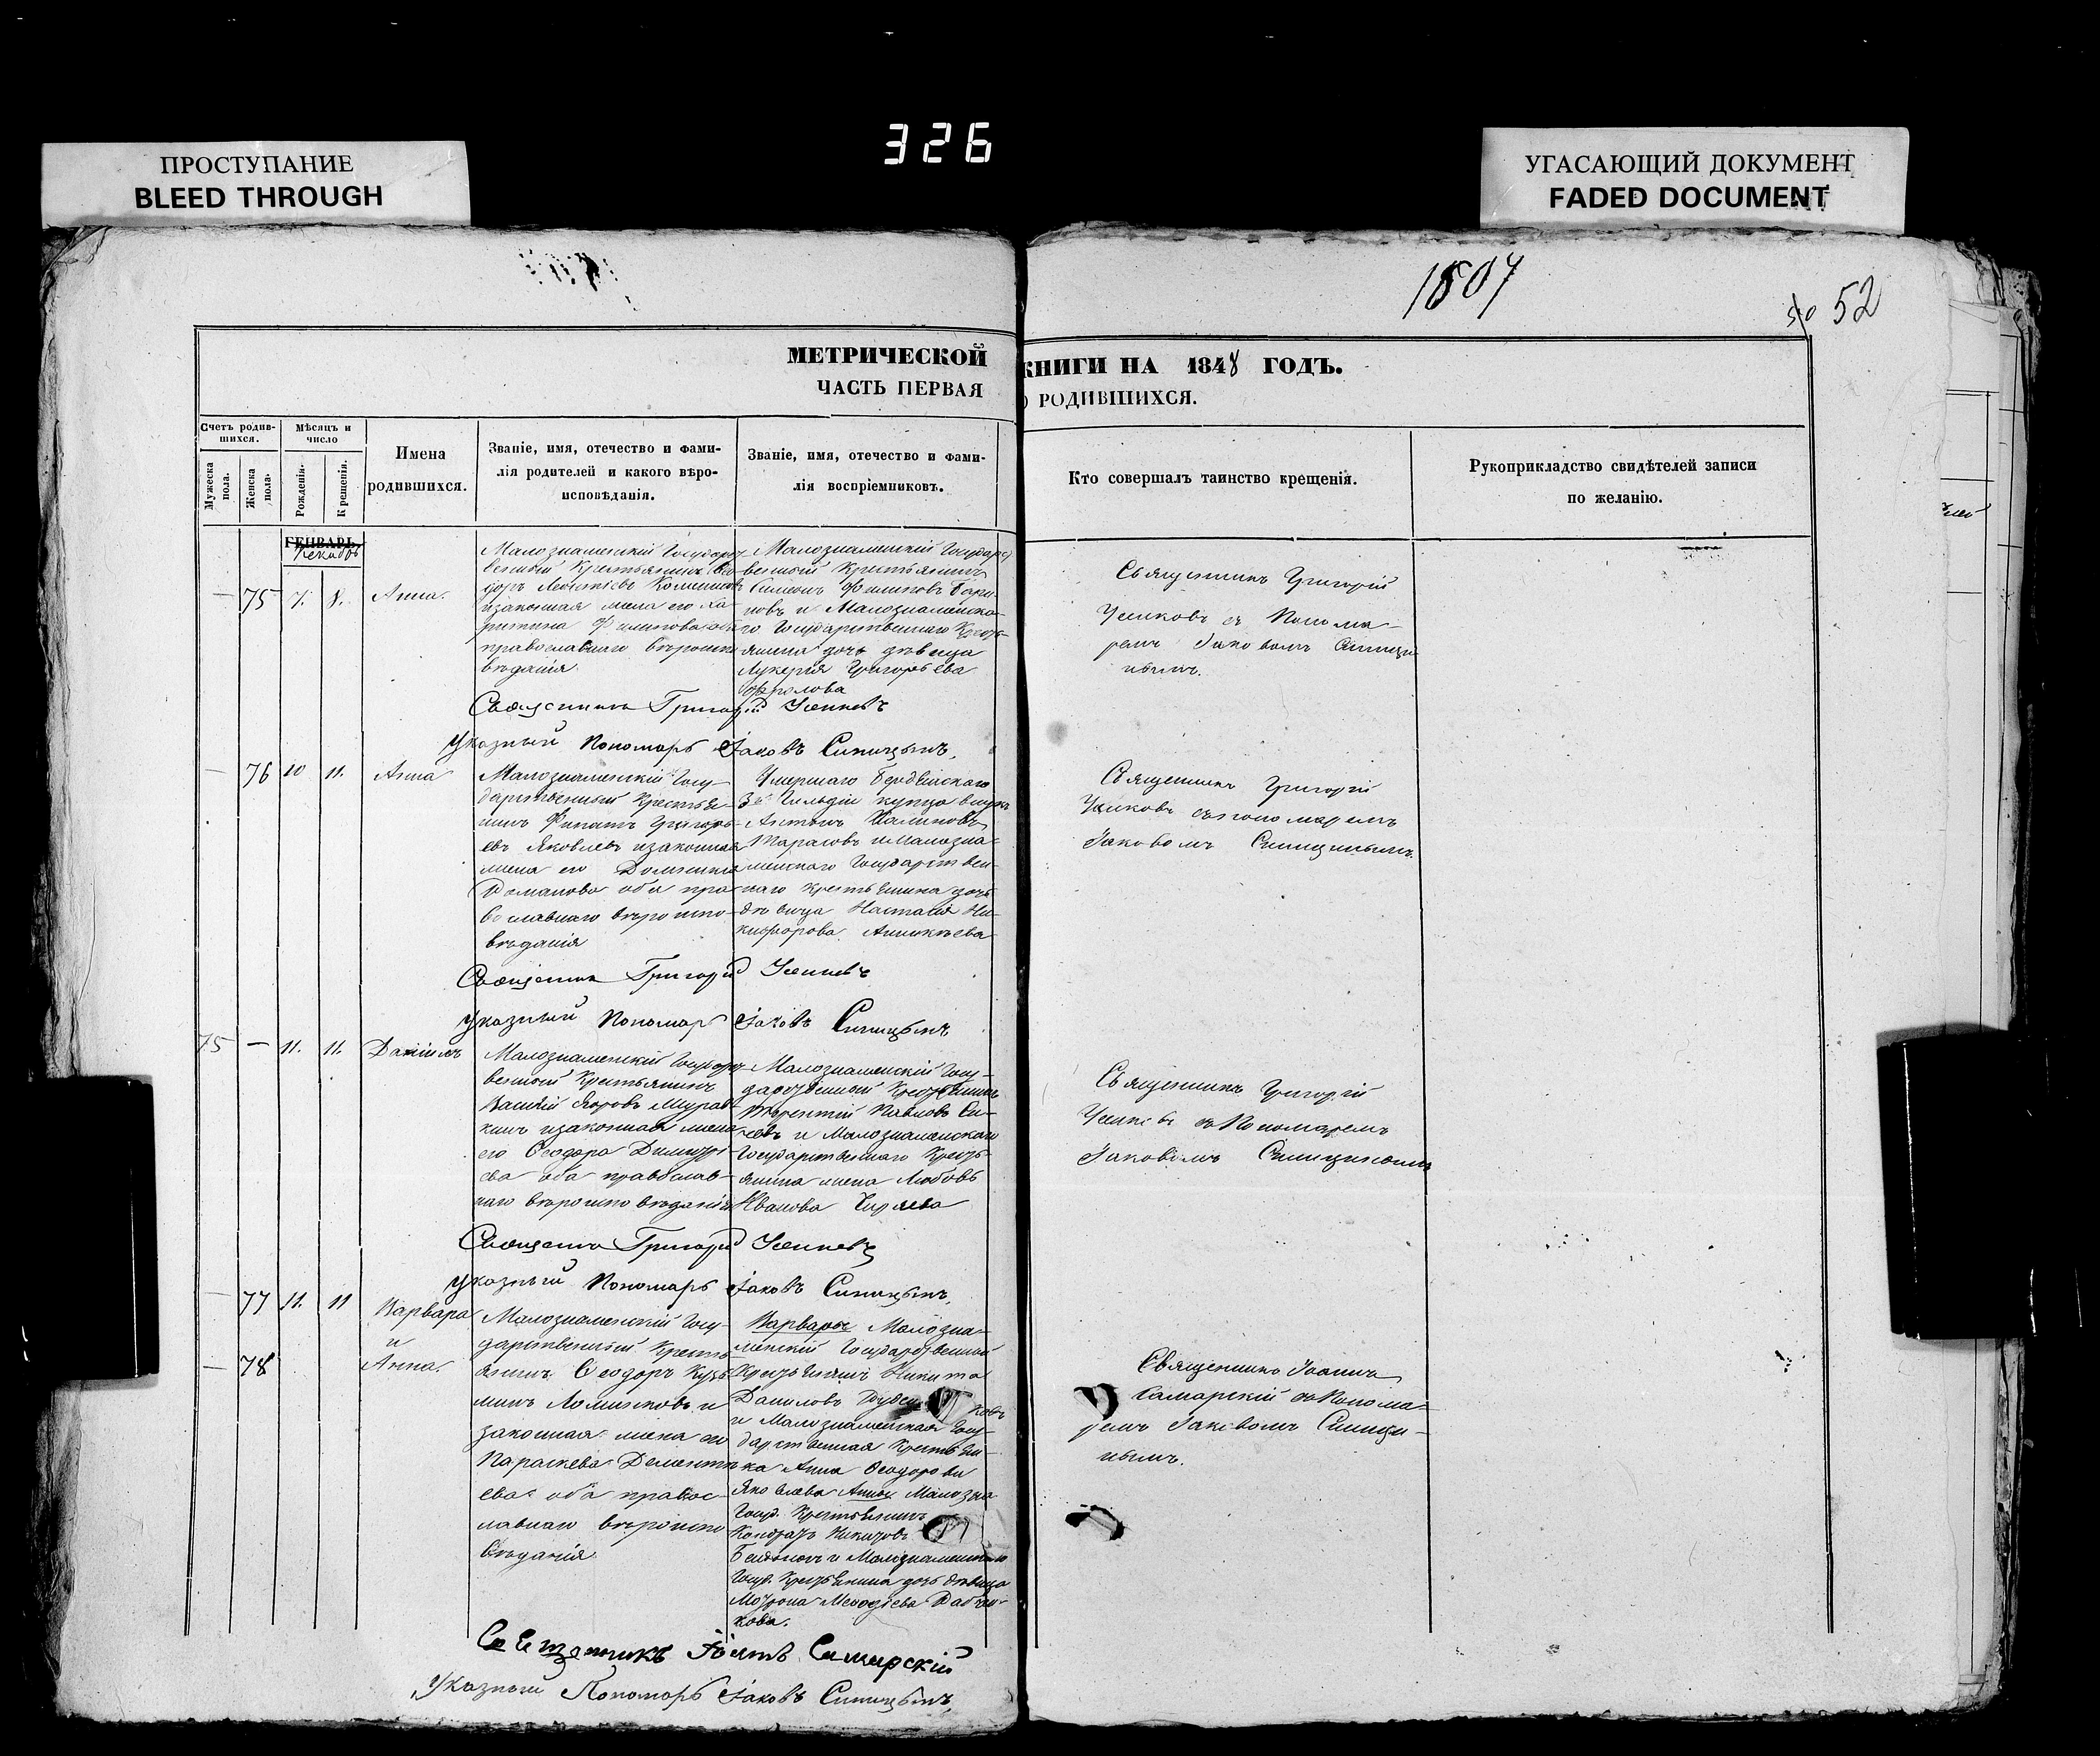 326
ПРОСТУПАНИЕ
BLEED THROUGH
УГАСАЮЩИЙ ДОКУМЕНТ
FADED DOCUMENT
1807
52
МЕТРИЧЕСКОЙ КНИГИ НА 1848 ГОДЪ.
ЧАСТЬ ПЕРВАЯ О РОДИВШИХСЯ.
Счетъ родив-
шихся.
Мужеска
пола.
Женска
пола.
Мѣсяцъ и
число
Рожденія.
Крещенія.
Имена
родившихся.
Званіе, имя, отечество и фами-
лія родителей и какого вѣро-
исповѣданія.
Званіе, имя, отечество и фами-
лія воспріемниковъ.
Кто совершалъ таинство крещенія.
Рукоприкладство свидѣтелей записи
по желанію.
ГЕНВАРЬ.
Декабрь
— 75 7. 8. Анна.
Малознаменскій Государст
венный Крестьянинъ
доръ Леонтіевъ
изаконная жена его Ха-
ритина Филипова оба
православнаго вѣроиспо
вѣданія
Малознаменскій Государс
венный Крестьянинъ
Симеонъ Филиповъ
новъ и Малознаменска-
го Государственнаго Кресть-
янина дочь дѣвица
Лукерія Григорьева
Фролова
Священникъ Григорій
Усиковъ съ Понома-
ремъ Іаковомъ Синици
нымъ.
Священникъ Григорій Усиковъ
Указный Пономарь Іаковъ Синицынъ.
— 76 10 11. Анна
Малознаменскій Госу-
дарственный Крестья-
нинъ Филипъ Григорь-
евъ Яковлевъ изаконная
жена его Домникія
Романова оба пра
вославнаго вѣроиспо-
вѣданія
Умершаго Бердянскаго
3й Гильдіи купца внукъ
Антонъ
Тарасовъ и Малозна-
менскаго Государствен-
наго крестьянина дочь
дѣвица Настасія Ни-
кифорова Аникѣева
Священникъ Григорій
Усиковъ съ пономаремъ
Іаковомъ Синицинымъ.
Священникъ Григорій Усиковъ
Указный Пономарь Іаковъ Синицынъ
75 — 11. 11. Даніилъ
Малознаменскій Государст
венный Крестьянинъ
Василій Егоровъ Мурав
кинъ изаконная жена
его Ѳеодора Димитрі
ева оба православ-
наго вѣроисповѣданія
Малознаменскій Госу-
дарственный Крестьянинъ
Терентій Павловъ Си-
чевъ и Малознаменскаго
Государственнаго Кресть-
янина жена Любовь
Иванова Чиряева
Священникъ Григорій
Усиковъ съ Пономаремъ
Іаковомъ Синицинымъ
Священникъ Григорій Усиковъ
Указный Пономарь Іаковъ Синицынъ.
— 77 11. 11 Варвара
и
— 78 Анна.
Малознаменскій Госу-
дарственный Кресть
янинъ Ѳеодоръ Кузь
минъ Ломинковъ и
законная жена его
Параскева Дементь
ева оба правос-
лавнаго вѣроиспо
вѣданія
Варвары Малозна-
менскій Государственной
Крестьянинъ Никита
Даниловъ
и Малознаменская Госу-
дарственная Крестьян-
ка Анна Ѳеодорова
Яковлева Анны Малозна
Госуд. Крестьянинъ
Кондратъ Никитовъ
и Малознаменскаго
Госуд. Крестьянина дочь дѣвица
Матрона Меѳодіева
кова.
Священникъ Іоаннъ
Самарскій съ Понома-
ремъ Іаковомъ Синици-
нымъ.
Священникъ Іоаннъ Самарскій
Указный Пономарь Іаковъ Синицынъ.